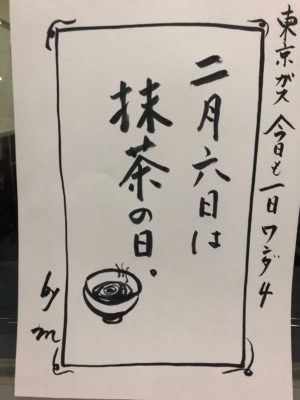 東京ガス 今日も一日ワンダ4
二月六日は
抹茶の日。
by m